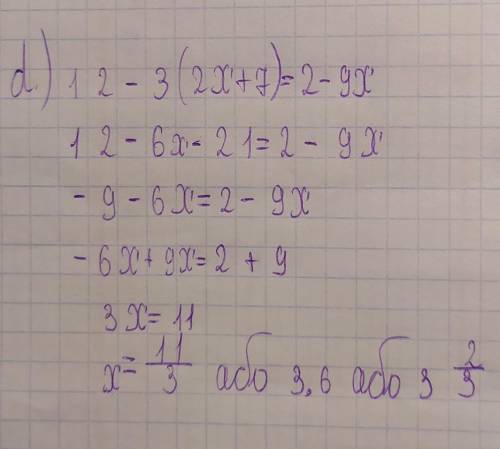 d.) 12 - 3(2x+7)=2-9x
12 - 6x - 21=2 - 9x
- 9 - 6x=2 - 9x
- 6x+9x=2 + 9
3x=11
x=11/3 або 3,6 або 3 2/3